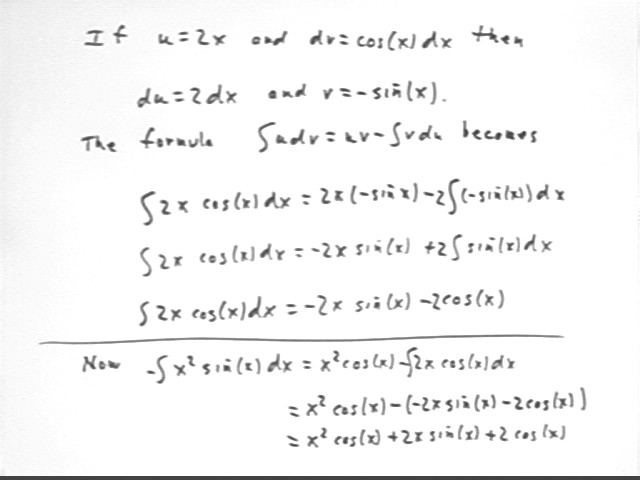 If u=2x and dv=cos(x)dx then
du=2dx and v=-sin(x).
The formula ∫udv=uv-∫vdu becomes
∫2x cos(x)dx = 2x(-sin x)-2∫(-sin(x))dx
∫2x cos(x)dx = -2x sin(x) +2∫sin(x)dx
∫2x cos(x)dx = -2x sin(x) -2cos(x)
Now -∫x² sin(x)dx = x²cos(x)-∫2x cos(x)dx
= x² cos(x)-(-2x sin(x)-2cos(x))
= x² cos(x)+2x sin(x)+2 cos(x)